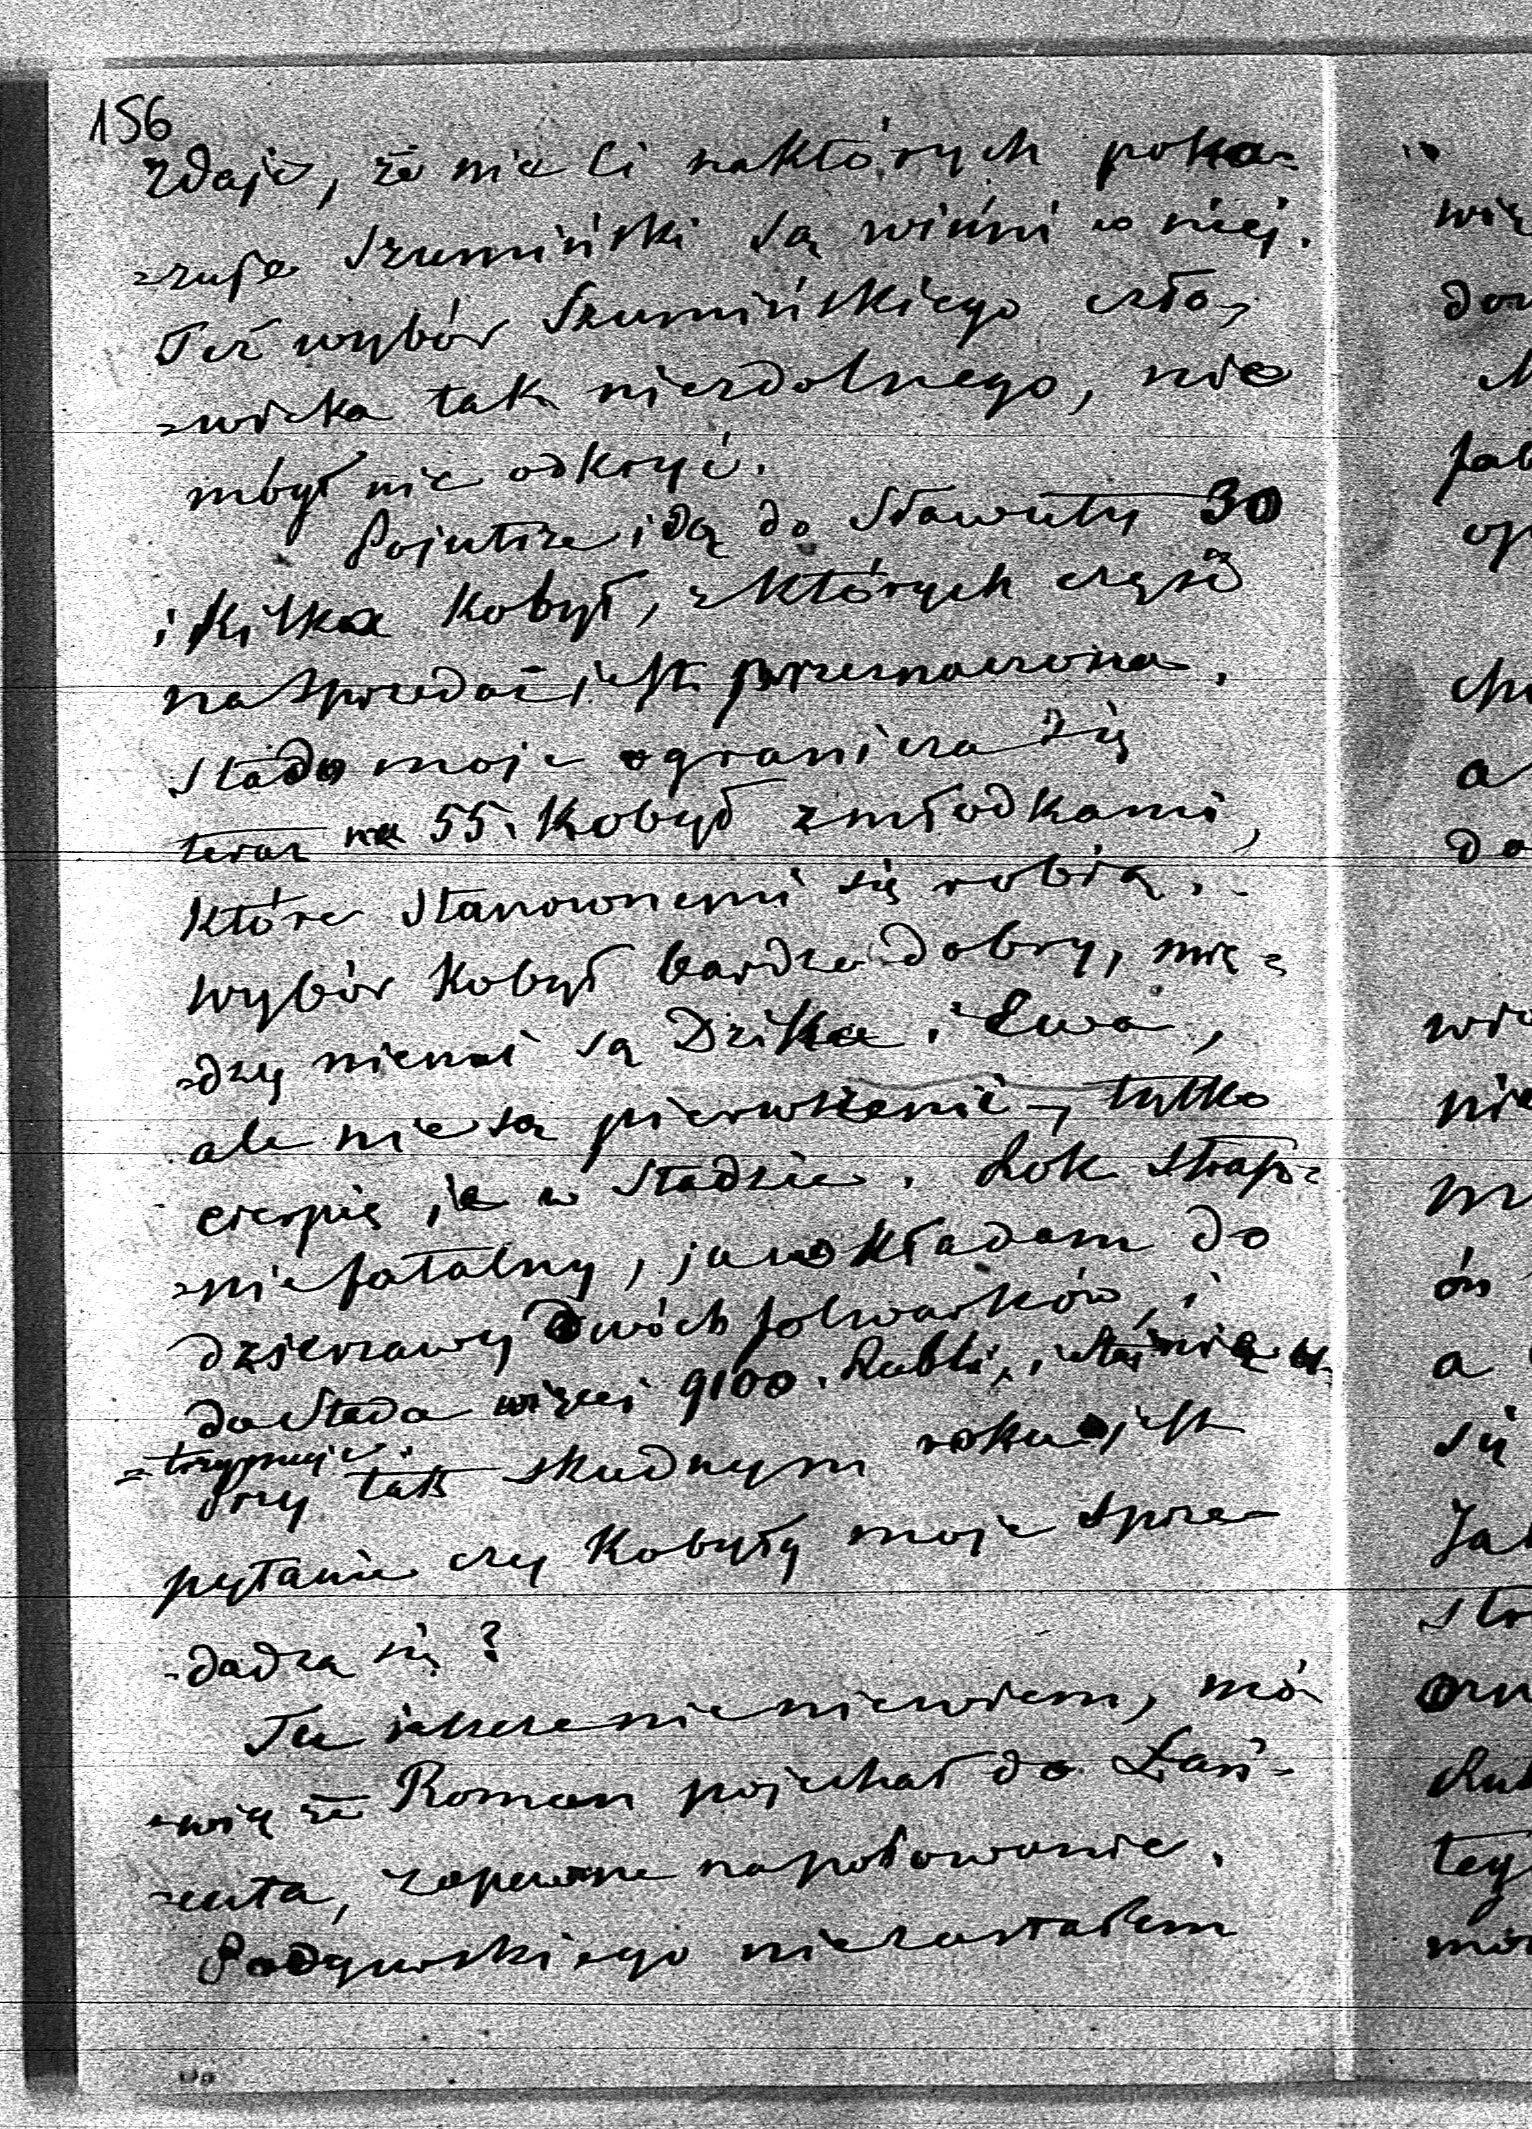 156
zdaje, że nie ci na których poka-
-zuje Szumiński są winni w niej.
Też wybór Szumińskiego czło-
-wieka tak niezdolnego, nie
mógł nie odkryć.
Pojutrze idą do Sławuty 30
i kilka kobył, z których część
na sprzedaż jest przeznaczona,
Stado moje ogranicza się
teraz na 55. kobył z młodkami,
które stanownemi się robią.
wybór kobył bardzo dobry, mię-
-dzy niemi są Dzika i Ewa,
ale nie są pierwszemi -, tylko
cierpię je w stadzie. Rok strasz-
-nie fatalny, ja wkładam do
dzierzawy dwóch folwarków, i
do stada więcej 9100. Rubli,
-trzymuje.
Przy tak skudnym roku jest
pytanie czy kobyły moje sprze-
-dadzą się?
Tu jeszcze nie niewiem, mó-
-wią że Roman pojechał do Łań-
-cuta, zapewne na polowanie.
niezastałem